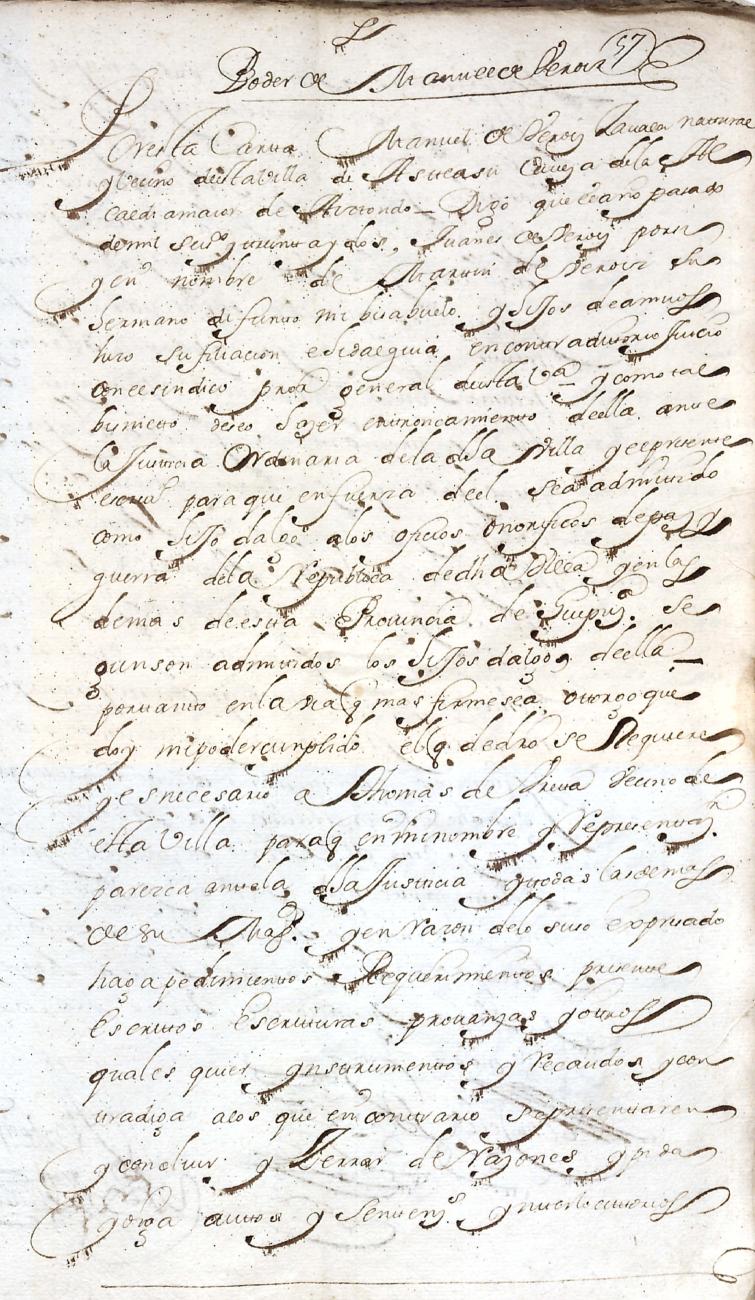 57
Poder de Manuel de Veroiz
Por esta Carta Manuel de Veroiz Zavala natural
y vecino desta villa de Asteasu Caveza dela Al
caldia maior de Aiztondo _ Digo que el año pasado
de mil seisº y treinta y dos, Juanes de Veroiz por si
y enº nombre de Martin de Veroiz su
hermano difunto mi bisabuelo y hijos de amvos
hizo su filiacion e hidalguia en contraditorio Juicio
con el sindico proºr general desta vª y como tal
bisnieto deseo hazer entroncamiento de ella ante
la Justicia Ordinaria de la dha Villa y el presente
escrivº para que en fuerza de el sea admitido
como hijo dalgo a los oficios onorificos de paz y
guerra de la Republica de dha villa y en las
demas de esta Provincia de Guipuzª se
gun son admitidos los hijos dalgo de ella _
por tanto en la via q mas firme sea otorgo que
doy mi poder cumplido el q de dro se Requiere
y es necesario a Thomas de vecino de
esta Villa para q en mi nombre y representazn
parezca ante la dha Justicia y todas las demas
de su Magd. y en razon de lo suso expresado
haga pedimientos Requerimientos presente
Escritos Escrituras provanzas y otros
quales quier ynstrumentos y recaudos y con
tradiga a los que en contrario se presentaren
y concluir y Zerrar de Razones y pida
y oiga autos y Sentenzs ynterlocutorios